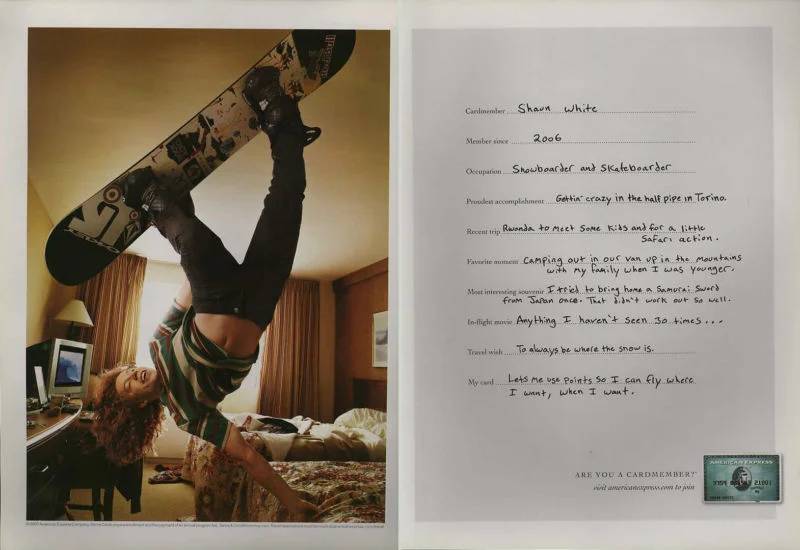 Cardmember Shaun White
Member since 2006
Occupation Snowboarder and Skateboarder
Proudest accomplishment Gettin' crazy in the half pipe in Torino.
Recent trip Rwanda to meet some kids and for a little
Safari action.
Favorite moment Camping out in our van up in the mountains
with my family when I was younger.
Most interesting souvenir I tried to bring home a Samurai Sword
from Japan once. That didn't work out so well.
In-flight movie Anything I haven't seen 30 times...
Travel wish To always be where the snow is.
My card Lets me use points so I can fly where
I want, when I want.
ARE YOU A CARDMEMBER?
visit americanexpress.com to join
AMERICAN EXPRESS